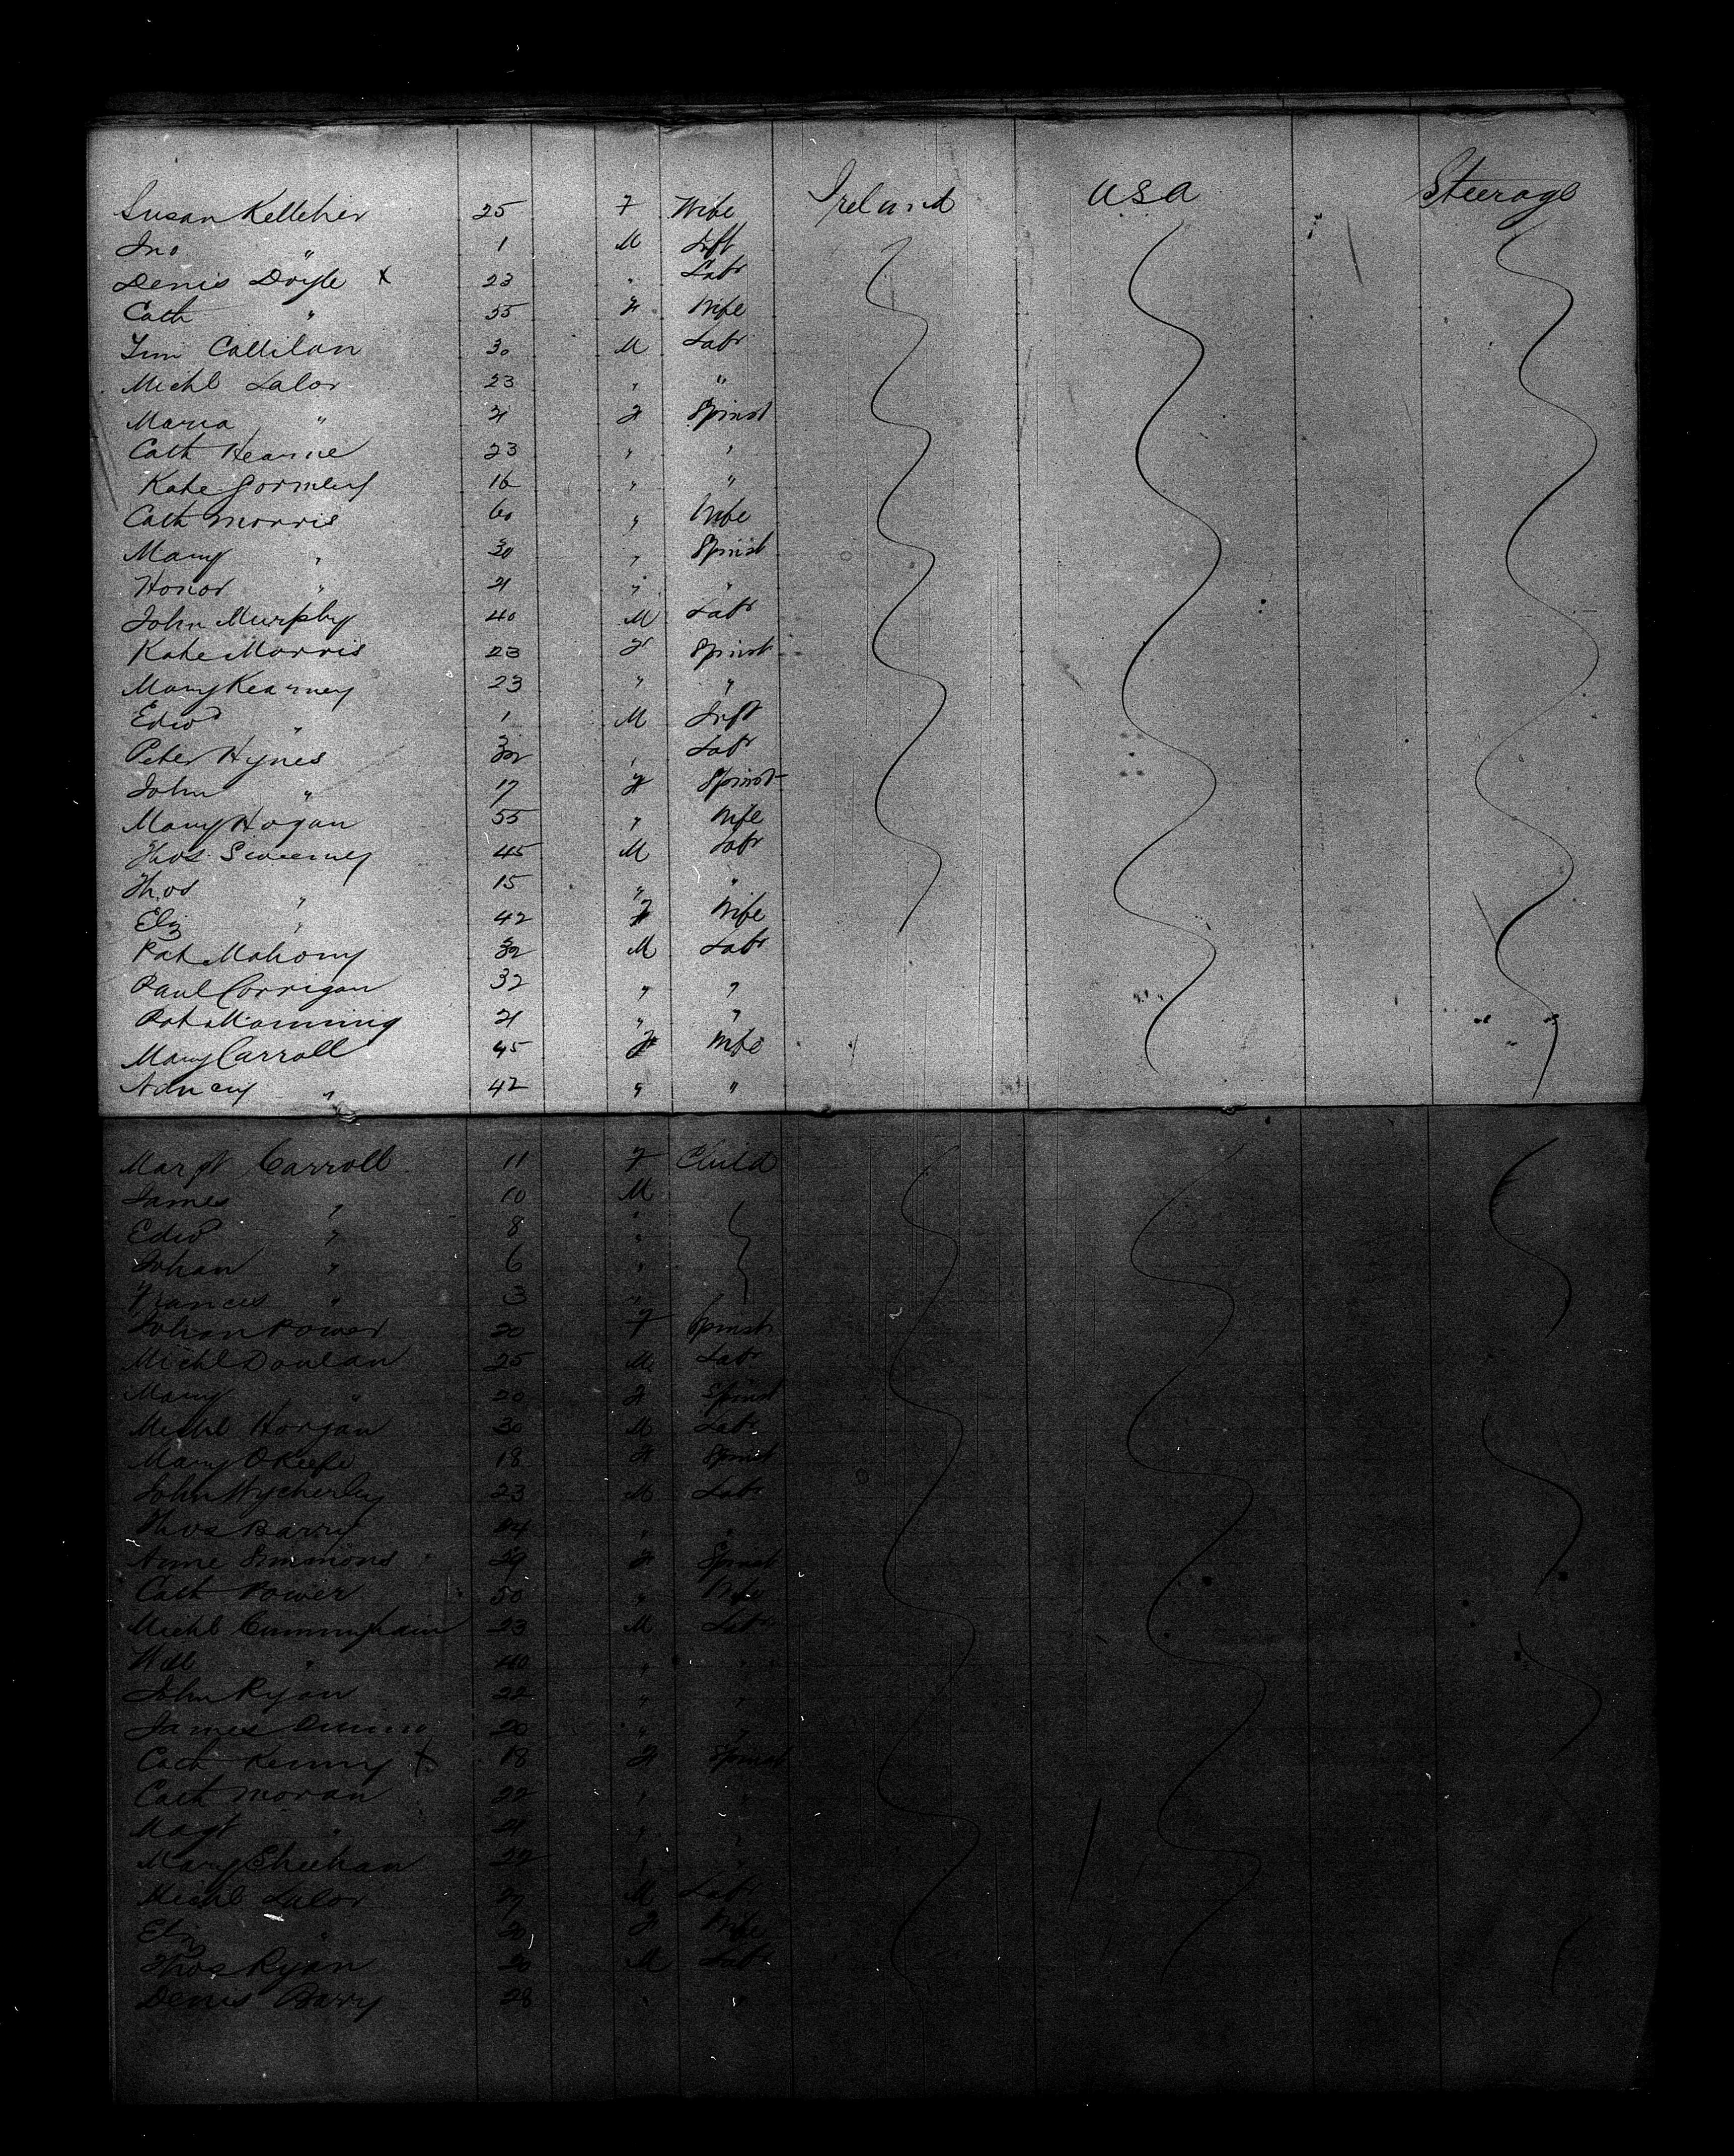 Susan Kelleher 25 F Wife Ireland USA Steerage
Jno " 1 M Inft
Denis Doyle x 23 " Labr
Cath " 55 F Wife
Tim Callilan 30 M Labr
Michl Lalor 23 " "
Maria " 21 F Spinst
Cath Hearne 23 " "
Kate Gormley 16 " "
Cath Morris 60 " Wife
Mary " 30 " Spinst
Honor " 21 " "
John Murphy 40 M Labr
Kate Morris 23 F Spinst
Mary Kearney 23 " "
Edwd " 1 M Inft
Peter Hynes 32 " Labr
John " 17 F Spinst
Mary Hogan 55 " Wife
Thos Sweeney 45 M Labr
Thos " 15 " "
Eliz " 42 F Wife
Pat Mahony 32 M Labr
Paul Corrigan 32 " "
Pat Manning 21 " "
Mary Carroll 45 F Wife
" 42 " "
Margt Carroll 11 F Child
James " 10 M
Edwd " 8 "
Johan " 6 "
Frances " 3 "
Johan Power 20 F Spinst
Michl Donlan 25 M Labr
Mary " 20 F Spinst
Michl Horgan 30 M Labr
Mary OKeefe 18 F Spinst
John Wycherley 23 M Labr
Thos Barry 24 " "
Anne Simmons 29 F Spinst
Cath Power 50 " Wife
Michl Cunningham 23 M Labr
Will " 40 " "
John Ryan 22 " "
James 20 " "
Cath Kenny x 18 F Spinst
Cath Moran 22 " "
Magt " 21 " "
Mary Sheehan 22 " "
Michl Lalor 27 M Labr
Eliz " F Wife
Thos Ryan 20 M Labr
Denis Barry 28 " "